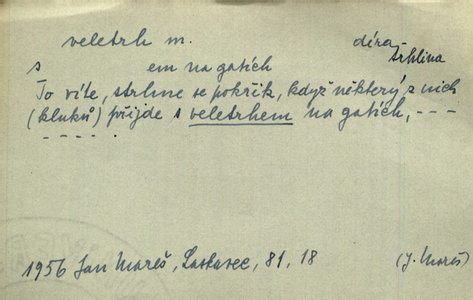 veletrh m. díra - trhlina
s em na gatích
To víte, strhne se pokřik, když některý z nich
(kluků) přijde s veletrhem na gatích, ---
- - - - - .
1956 Jan Mareš, 81, 18 (J. Mareš)